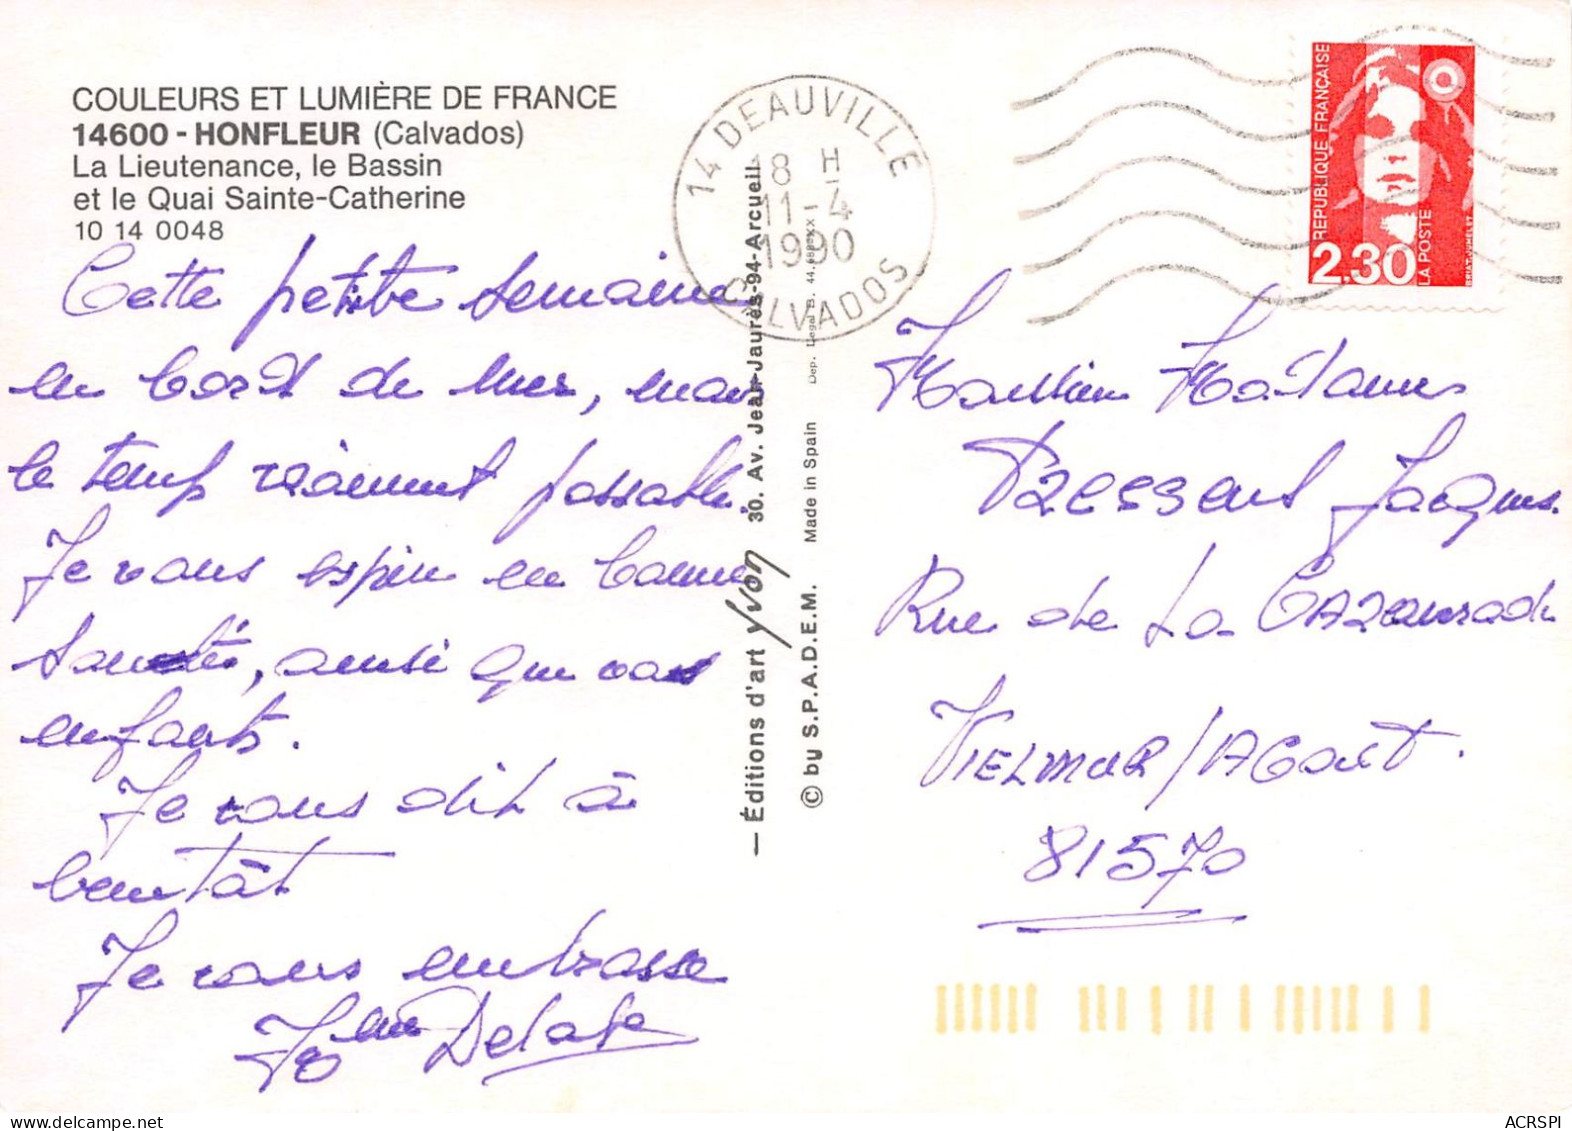 COULEURS ET LUMIÈRE DE FRANCE
14600 - HONFLEUR (Calvados)
La Lieutenance, le Bassin
et le Quai Sainte-Catherine
10 14 0048
Cette petite semaine
en bord de mer, mais
le temp vraiment passable.
Je vous espère en bonne
santé, ainsi que vos
enfants.
Je vous dit à
bientôt
Je vous embrasse
— Éditions d'art Yvon 30. Av. Jean-Jaurès-94-Arcueil
© by S.P.A.D.E.M. Made in Spain Dep. Legal B.
14 DEAUVILLE
18 H
11-4
1990
CALVADOS
REPUBLIQUE FRANÇAISE
2,30
LA POSTE
BRIAT-JUMELET
Monsieur Madame
Pressent Jacques
Rue de La
VIELMUR/AGout.
81570
ACRSPI